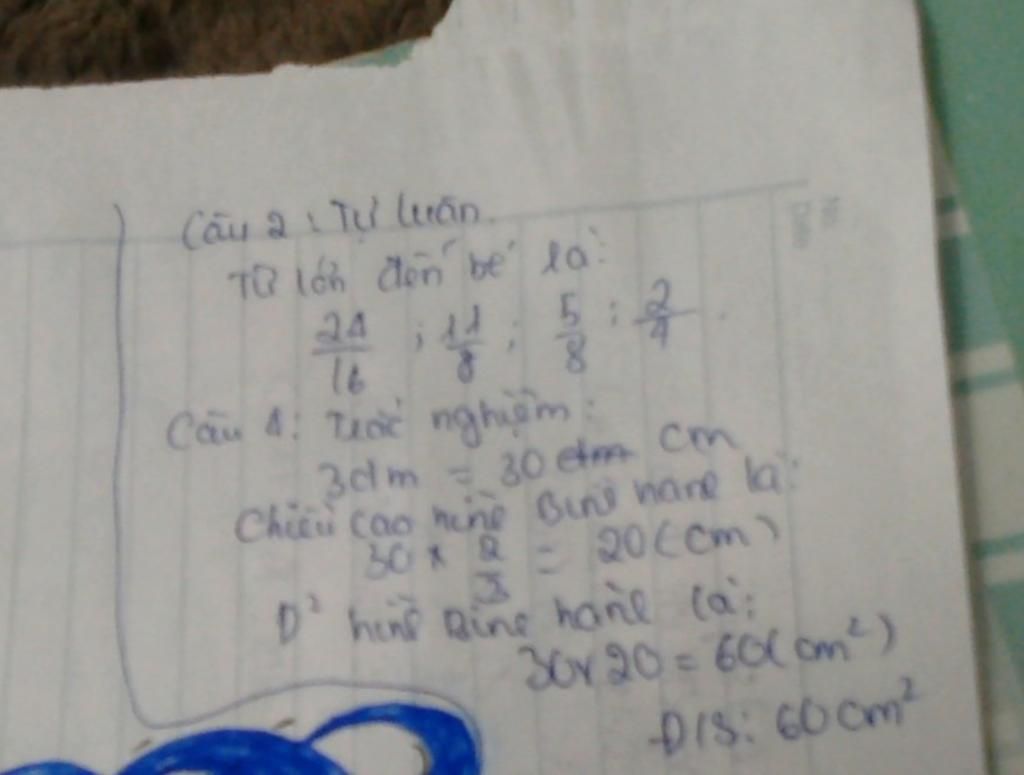 Câu 2: Tự luận.
Từ lớn đến bé là:
24/16 ; 11/8 ; 5/8 ; 2/4.
Câu 4: trắc nghiệm:
3dm = 30 dm cm
Chiều cao hình Bình hành là:
30 x 2/3 = 20 (cm)
D² hình Bình hành là:
30 x 20 = 60 (cm²)
Đ/S: 60 cm²